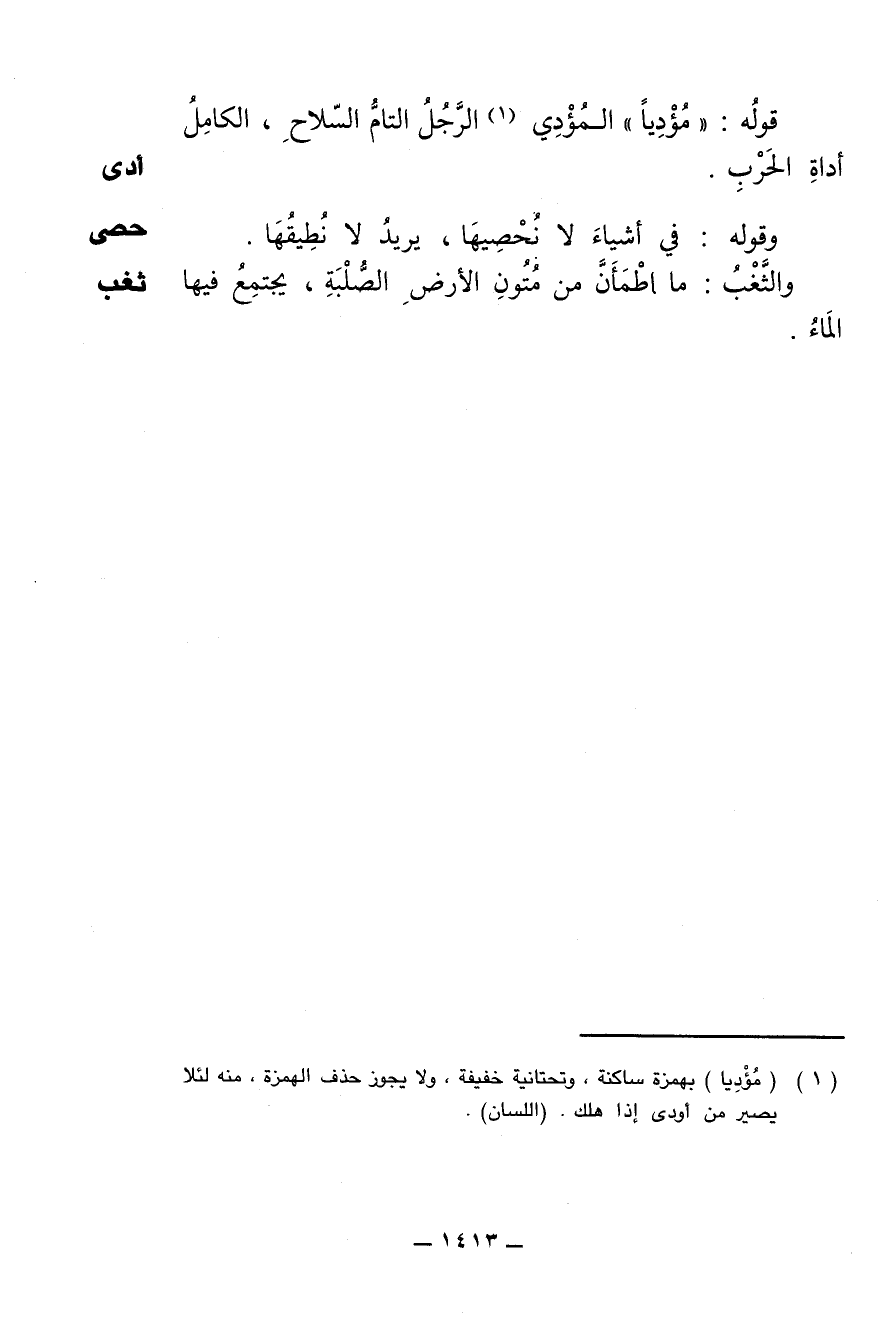 قولُه : « مُؤْدِياً » الـمُؤْدِي (١) الرَّجُلُ التامُّ السّلاحِ ، الكامِلُ
أداةِ الحَرْبِ .
أدى
وقوله : في أشياءَ لا نُحْصِيهَا ، يريدُ لا نُطِيقُهَا .
حصى
والثَّغْبُ : ما اطْمَأَنَّ من مُتُونِ الأرضِ الصُّلْبَةِ ، يجتمِعُ فيها
ثغب
الَماءُ .
( ١ ) ( مُؤْدِيا ) بهمزة ساكنة ، وتحتانية خفيفة ، ولا يجوز حذف الهمزة ، منه لئلا
يصير من أودى إذا هلك . (اللسان) .
ــ ١٤١٣ ــ